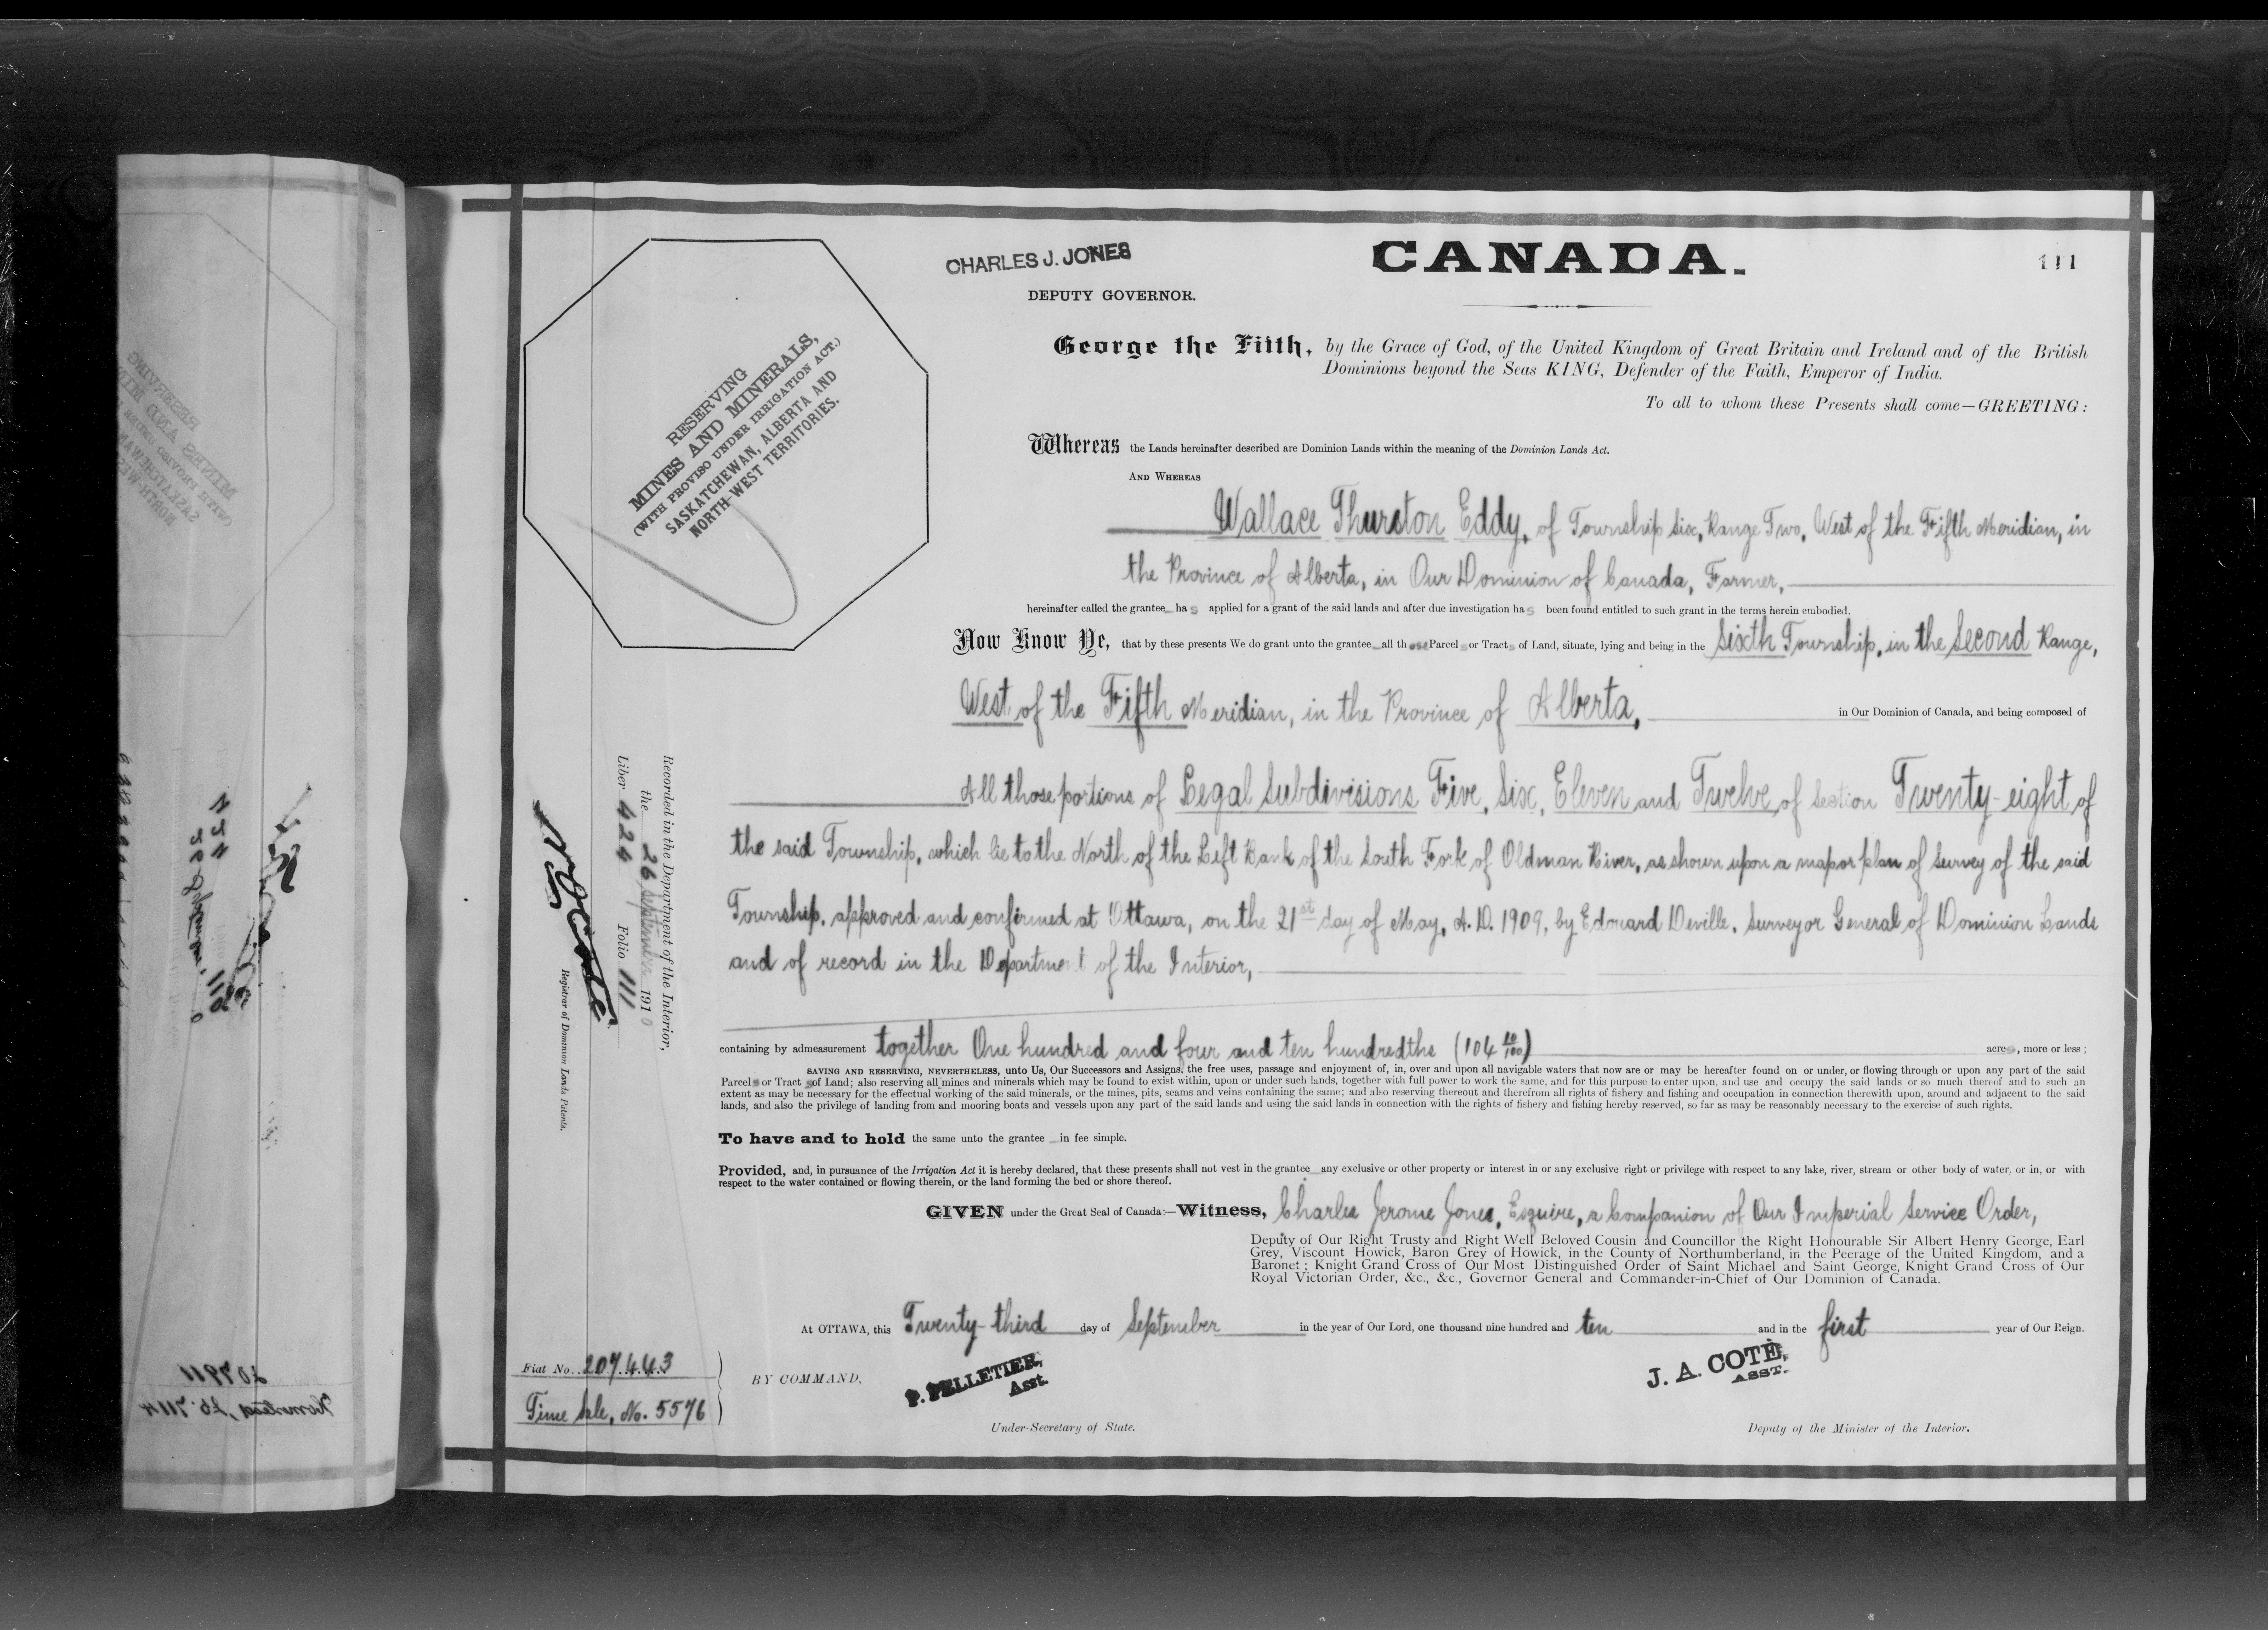 CHARLES J. JONES
DEPUTY GOVERNOR.
CANADA.
111
George the Fifth, by the Grace of God, of the United Kingdom of Great Britain and Ireland and of the British
Dominions beyond the Seas KING, Defender of the Faith, Emperor of India.
To all to whom these Presents shall come—GREETING:
RESERVING
MINES AND MINERALS,
(WITH PROVISO UNDER IRRIGATION ACT.)
SASKATCHEWAN, ALBERTA AND
NORTH-WEST TERRITORIES.
Whereas the Lands hereinafter described are Dominion Lands within the meaning of the Dominion Lands Act.
AND WHEREAS
Wallace Thurston Eddy, of Township Six, Range Two, West of the Fifth Meridian, in
the Province of Alberta, in Our Dominion of Canada, Farmer,
hereinafter called the grantee has applied for a grant of the said lands and after due investigation has been found entitled to such grant in the terms herein embodied.
Now Know Ye, that by these presents We do grant unto the grantee all those Parcels or Tracts of Land, situate, lying and being in the Sixth Township, in the Second Range,
West of the Fifth Meridian, in the Province of Alberta, in Our Dominion of Canada, and being composed of
All those portions of Legal Subdivisions Five, Six, Eleven and Twelve of Section Twenty-eight of
the said Township, which lie to the North of the Left Bank of the South Fork of Oldman River, as shown upon a map or plan of Survey of the said
Township, approved and confirmed at Ottawa, on the 21st day of May, A.D. 1909, by Edouard Deville, Surveyor General of Dominion Lands
and of record in the Department of the Interior,
containing by admeasurement together One hundred and four and ten hundredths (104 10/100) acres, more or less;
SAVING AND RESERVING, NEVERTHELESS, unto Us, Our Successors and Assigns, the free uses, passage and enjoyment of, in, over and upon all navigable waters that now are or may be hereafter found on or under, or flowing through or upon any part of the said
Parcels or Tracts of Land; also reserving all mines and minerals which may be found to exist within, upon or under such lands, together with full power to work the same, and for this purpose to enter upon, and use and occupy the said lands or so much thereof and to such an
extent as may be necessary for the effectual working of the said minerals, or the mines, pits, seams and veins containing the same; and also reserving thereout and therefrom all rights of fishery and fishing and occupation in connection therewith upon, around and adjacent to the said
lands, and also the privilege of landing from and mooring boats and vessels upon any part of the said lands and using the said lands in connection with the rights of fishery and fishing hereby reserved, so far as may be reasonably necessary to the exercise of such rights.
To have and to hold the same unto the grantee in fee simple.
Provided, and, in pursuance of the Irrigation Act it is hereby declared, that these presents shall not vest in the grantee any exclusive or other property or interest in or any exclusive right or privilege with respect to any lake, river, stream or other body of water, or in, or with
respect to the water contained or flowing therein, or the land forming the bed or shore thereof.
GIVEN under the Great Seal of Canada:—Witness, Charles Jerome Jones, Esquire, a Companion of Our Imperial Service Order,
Deputy of Our Right Trusty and Right Well Beloved Cousin and Councillor the Right Honourable Sir Albert Henry George, Earl
Grey, Viscount Howick, Baron Grey of Howick, in the County of Northumberland, in the Peerage of the United Kingdom, and a
Baronet; Knight Grand Cross of Our Most Distinguished Order of Saint Michael and Saint George, Knight Grand Cross of Our
Royal Victorian Order, &c., &c., Governor General and Commander-in-Chief of Our Dominion of Canada.
At OTTAWA, this Twenty-third day of September in the year of Our Lord, one thousand nine hundred and ten and in the first year of Our Reign.
BY COMMAND,
P. PELLETIER,
Asst.
Under-Secretary of State.
J. A. COTÉ,
ASST.
Deputy of the Minister of the Interior.
Fiat No. 207443
Time Sale, No. 5576
Recorded in the Department of the Interior,
the 26 September 1910
Liber 424 Folio 111
Registrar of Dominion Lands Patents.